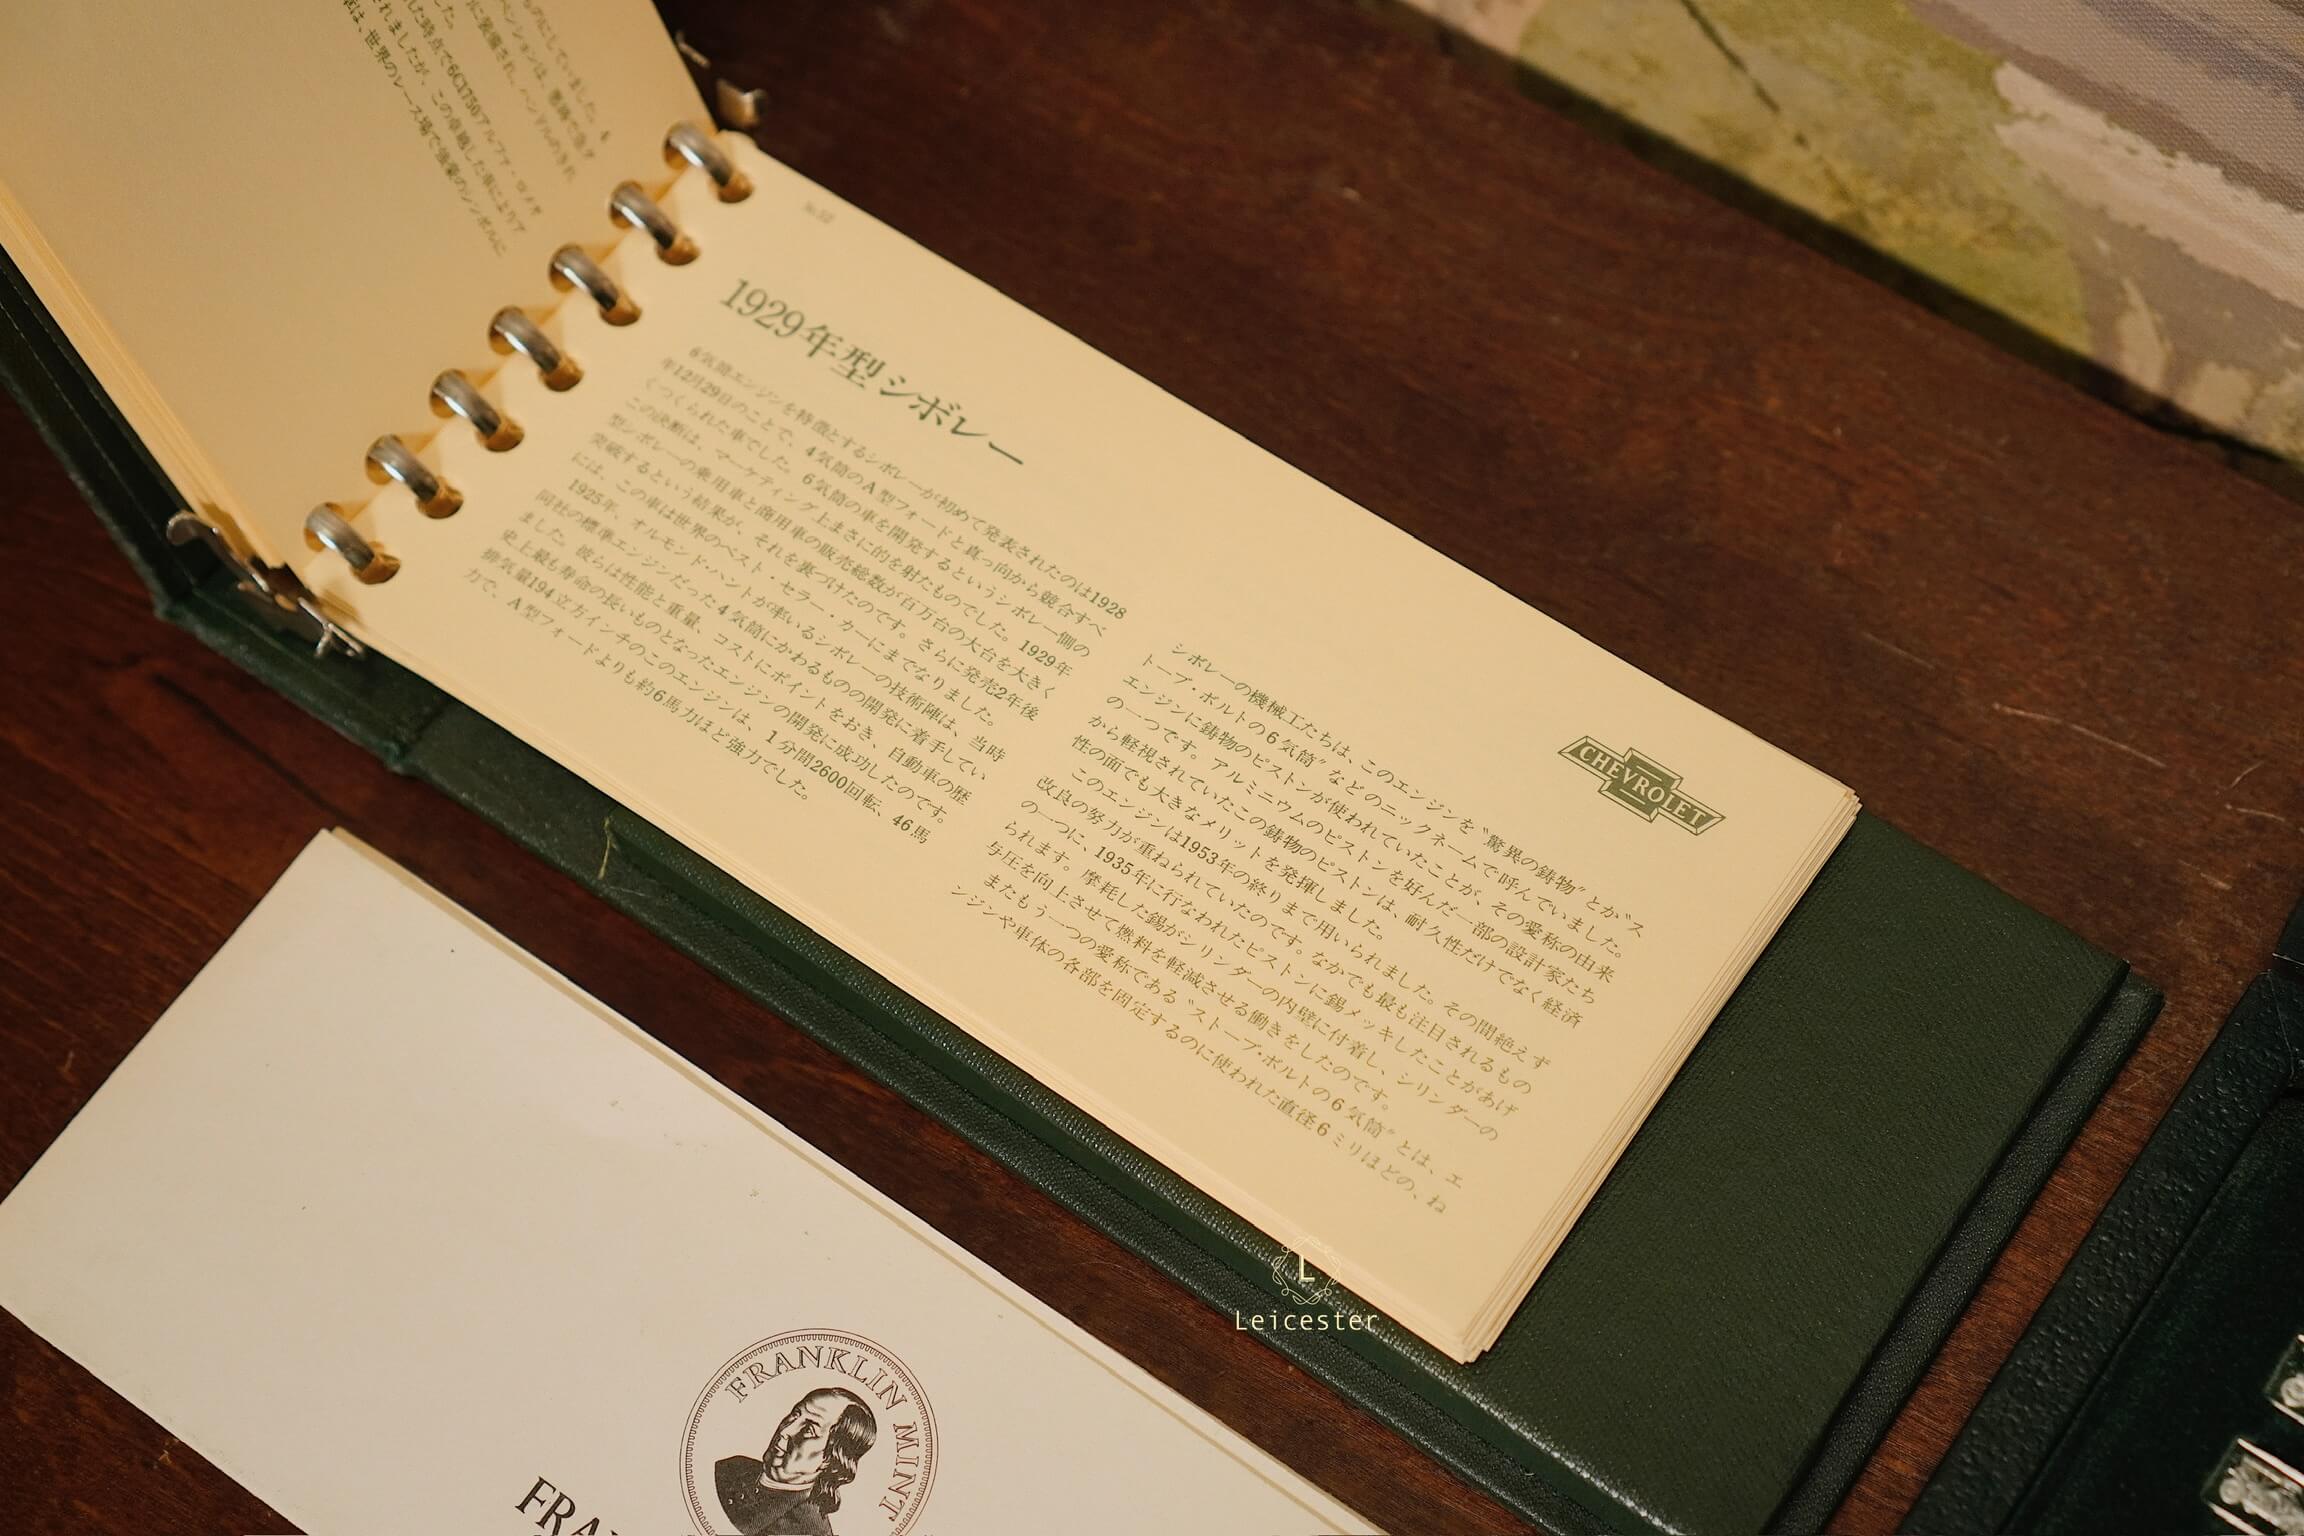 ものにしていました。4
ペンションは、悪路で急ク
に装備され、ハンドルのきれ
した。
れた時点で6C1750アルファ・ロメオ
されましたが、この卓越した車によりア
車は、世界のレース場で強豪のシンボルに
1929年型シボレー
6気筒エンジンを特徴とするシボレーが初めて発表されたのは1928
年12月29日のことで、4気筒のA型フォードと真っ向から競合すべ
くつくられた車でした。6気筒の車を開発するというシボレー側の
この決断は、マーケティング上まさに的を射たものでした。1929年
型シボレーの乗用車と商用車の販売総数が百万台の大台を大きく
突破するという結果が、それを裏づけたのです。さらに発売2年後
には、この車は世界のベスト・セラー・カーにまでなりました。
1925年、オルモンド・ハントが率いるシボレーの技術陣は、当時
同社の標準エンジンだった4気筒にかわるものの開発に着手してい
ました。彼らは性能と重量、コストにポイントをおき、自動車の歴
史上最も寿命の長いものとなったエンジンの開発に成功したのです。
排気量194立方インチのこのエンジンは、1分間2600回転、46馬
力で、A型フォードよりも約6馬力ほど強力でした。
シボレーの機械工たちは、このエンジンを〝驚異の鋳物〟とか〝ス
トーブ・ボルトの6気筒〟などのニックネームで呼んでいました。
エンジンに鋳物のピストンが使われていたことが、その愛称の由来
の一つです。アルミニウムのピストンを好んだ一部の設計家たち
から軽視されていたこの鋳物のピストンは、耐久性だけでなく経済
性の面でも大きなメリットを発揮しました。
このエンジンは1953年の終りまで用いられました。その間絶えず
改良の努力が重ねられていたのです。なかでも最も注目されるもの
の一つに、1935年に行なわれたピストンに錫メッキしたことがあげ
られます。摩耗した錫がシリンダーの内壁に付着し、シリンダーの
与圧を向上させて燃料を軽減させる働きをしたのです。
またもう一つの愛称である〝ストーブ・ボルトの6気筒〟とは、エ
ンジンや車体の各部を固定するのに使われた直径6ミリほどの、ね
CHEVROLET
L
Leicester
FRANKLIN MINT